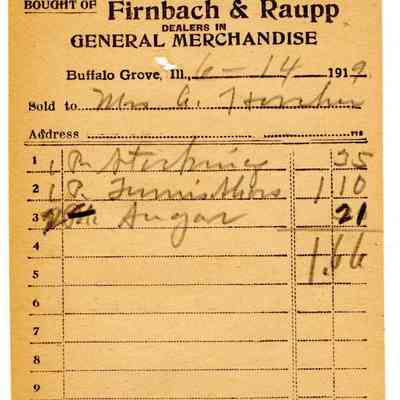 BOUGHT OF Firnbach & Raupp
DEALERS IN
GENERAL MERCHANDISE
Buffalo Grove, Ill., 6-14 1919
Sold to Mrs
Address
1 1 Pr Stockings 35
2 1 Pr 1 10
3 Sugar 21
4 1.66
5
6
7
8
9